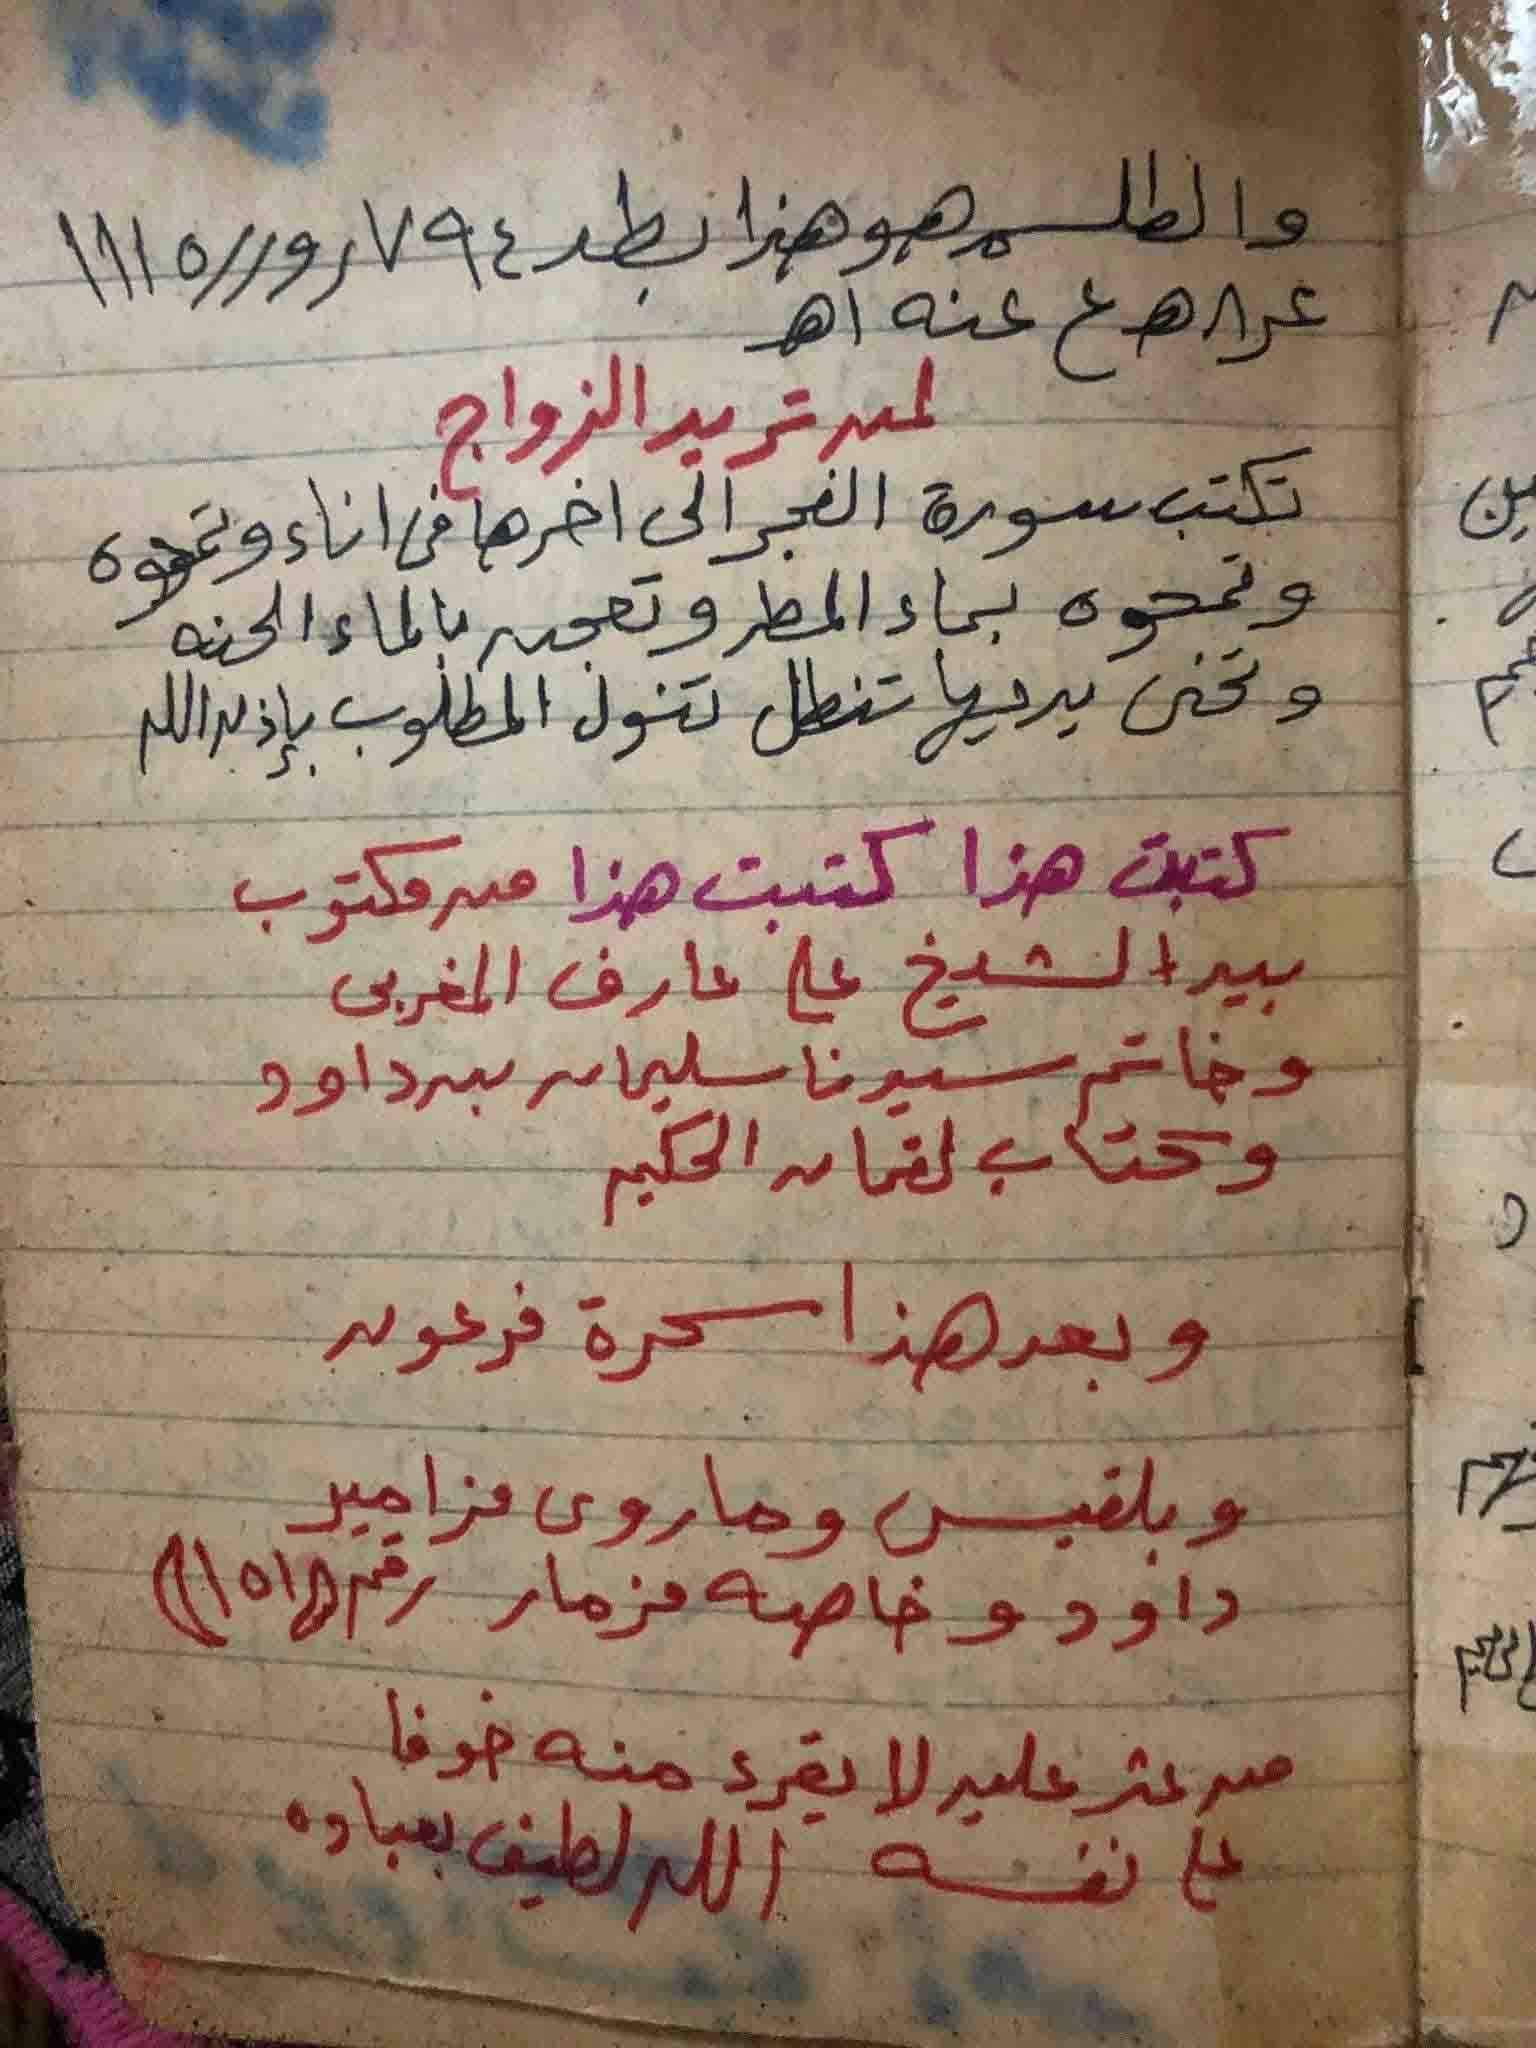 والطلسم هو هذا بطد ٧٩٤
عنه اهـ
لمن تريد الزواج
تكتب سورة الفجر الى اخرها فى اناء وتمحوه
وتمحوه بماء المطر وتعجن بالماء الحنه
وتخنى يديها تنول المطلوب بإذن الله
كتبت هذا كتبت هذا من مكتوب
بيد الشيخ على عارف المغربى
وخاتم سيدنا سليمان بن داود
وكتاب لقمان الحكيم
وبعد هذا سحرة فرعون
وبلقيس وماروى مزامير
داود وخاصه مزمار رقم
من عثر عليه لا يقرء منه خوفا
على نفسه الله لطيف بعباده